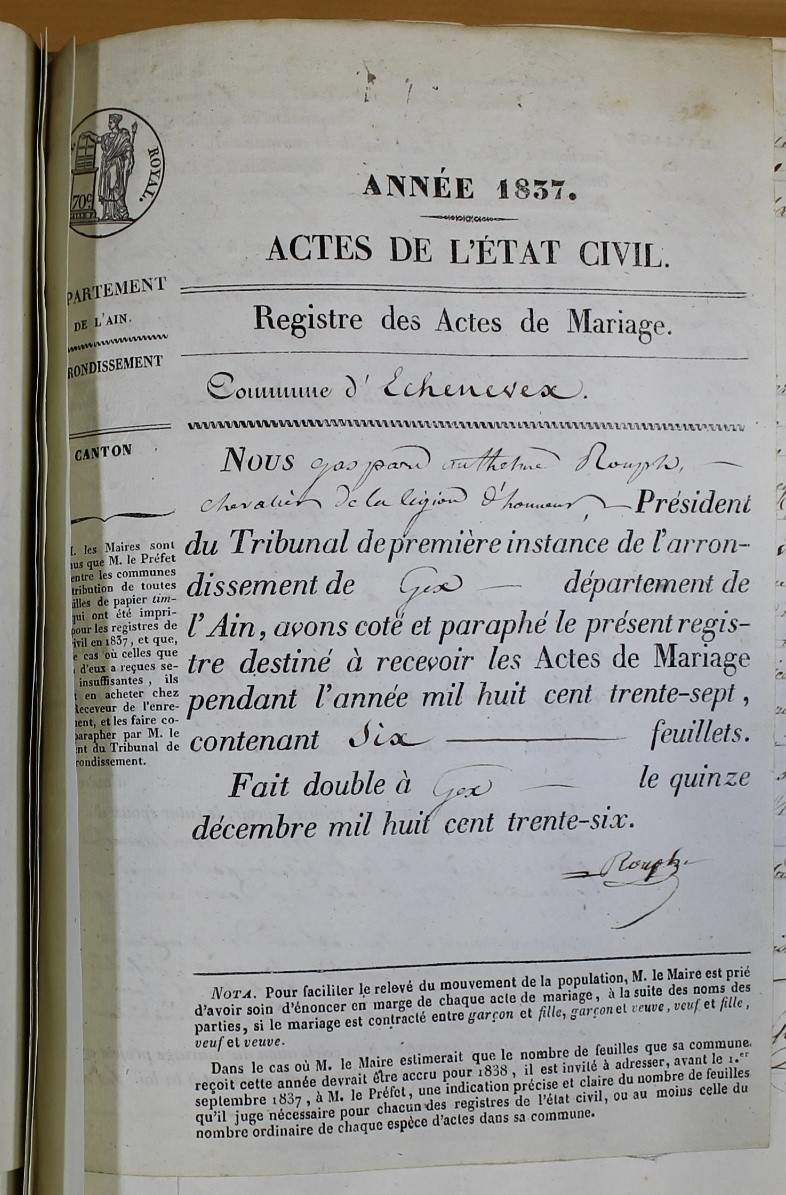 ROYAL.
70c
ANNÉE 1837.
ACTES DE L'ÉTAT CIVIL.
PARTEMENT
DE L'AIN.
RONDISSEMENT
CANTON
I. les Maires sont
us que M. le Préfet
entre les communes
tribution de toutes
illes de papier tim-
qui ont été impri-
pour les registres de
ivil en 1837, et que,
e cas où celles que
d'eux a reçues se-
insuffisantes, ils
t en acheter chez
Receveur de l'enre-
ment, et les faire co-
parapher par M. le
nt du Tribunal de
rondissement.
Registre des Actes de Mariage.
Commune d'Echenevex.
NOUS gaspard anthelme Rouph,
chevalier de la légion d'honneur, Président
du Tribunal de première instance de l'arron-
dissement de Gex département de
l'Ain, avons coté et paraphé le présent regis-
tre destiné à recevoir les Actes de Mariage
pendant l'année mil huit cent trente-sept,
contenant Six feuillets.
Fait double à Gex le quinze
décembre mil huit cent trente-six.
Rouph
NOTA. Pour faciliter le relevé du mouvement de la population, M. le Maire est prié
d'avoir soin d'énoncer en marge de chaque acte de mariage, à la suite des noms des
parties, si le mariage est contracté entre garçon et fille, garçon et veuve, veuf et fille,
veuf et veuve.
Dans le cas où M. le Maire estimerait que le nombre de feuilles que sa commune
reçoit cette année devrait être accru pour 1838, il est invité à adresser, avant le 1.er
septembre 1837, à M. le Préfet, une indication précise et claire du nombre de feuilles
qu'il juge nécessaire pour chacun des registres de l'état civil, ou au moins celle du
nombre ordinaire de chaque espèce d'actes dans sa commune.